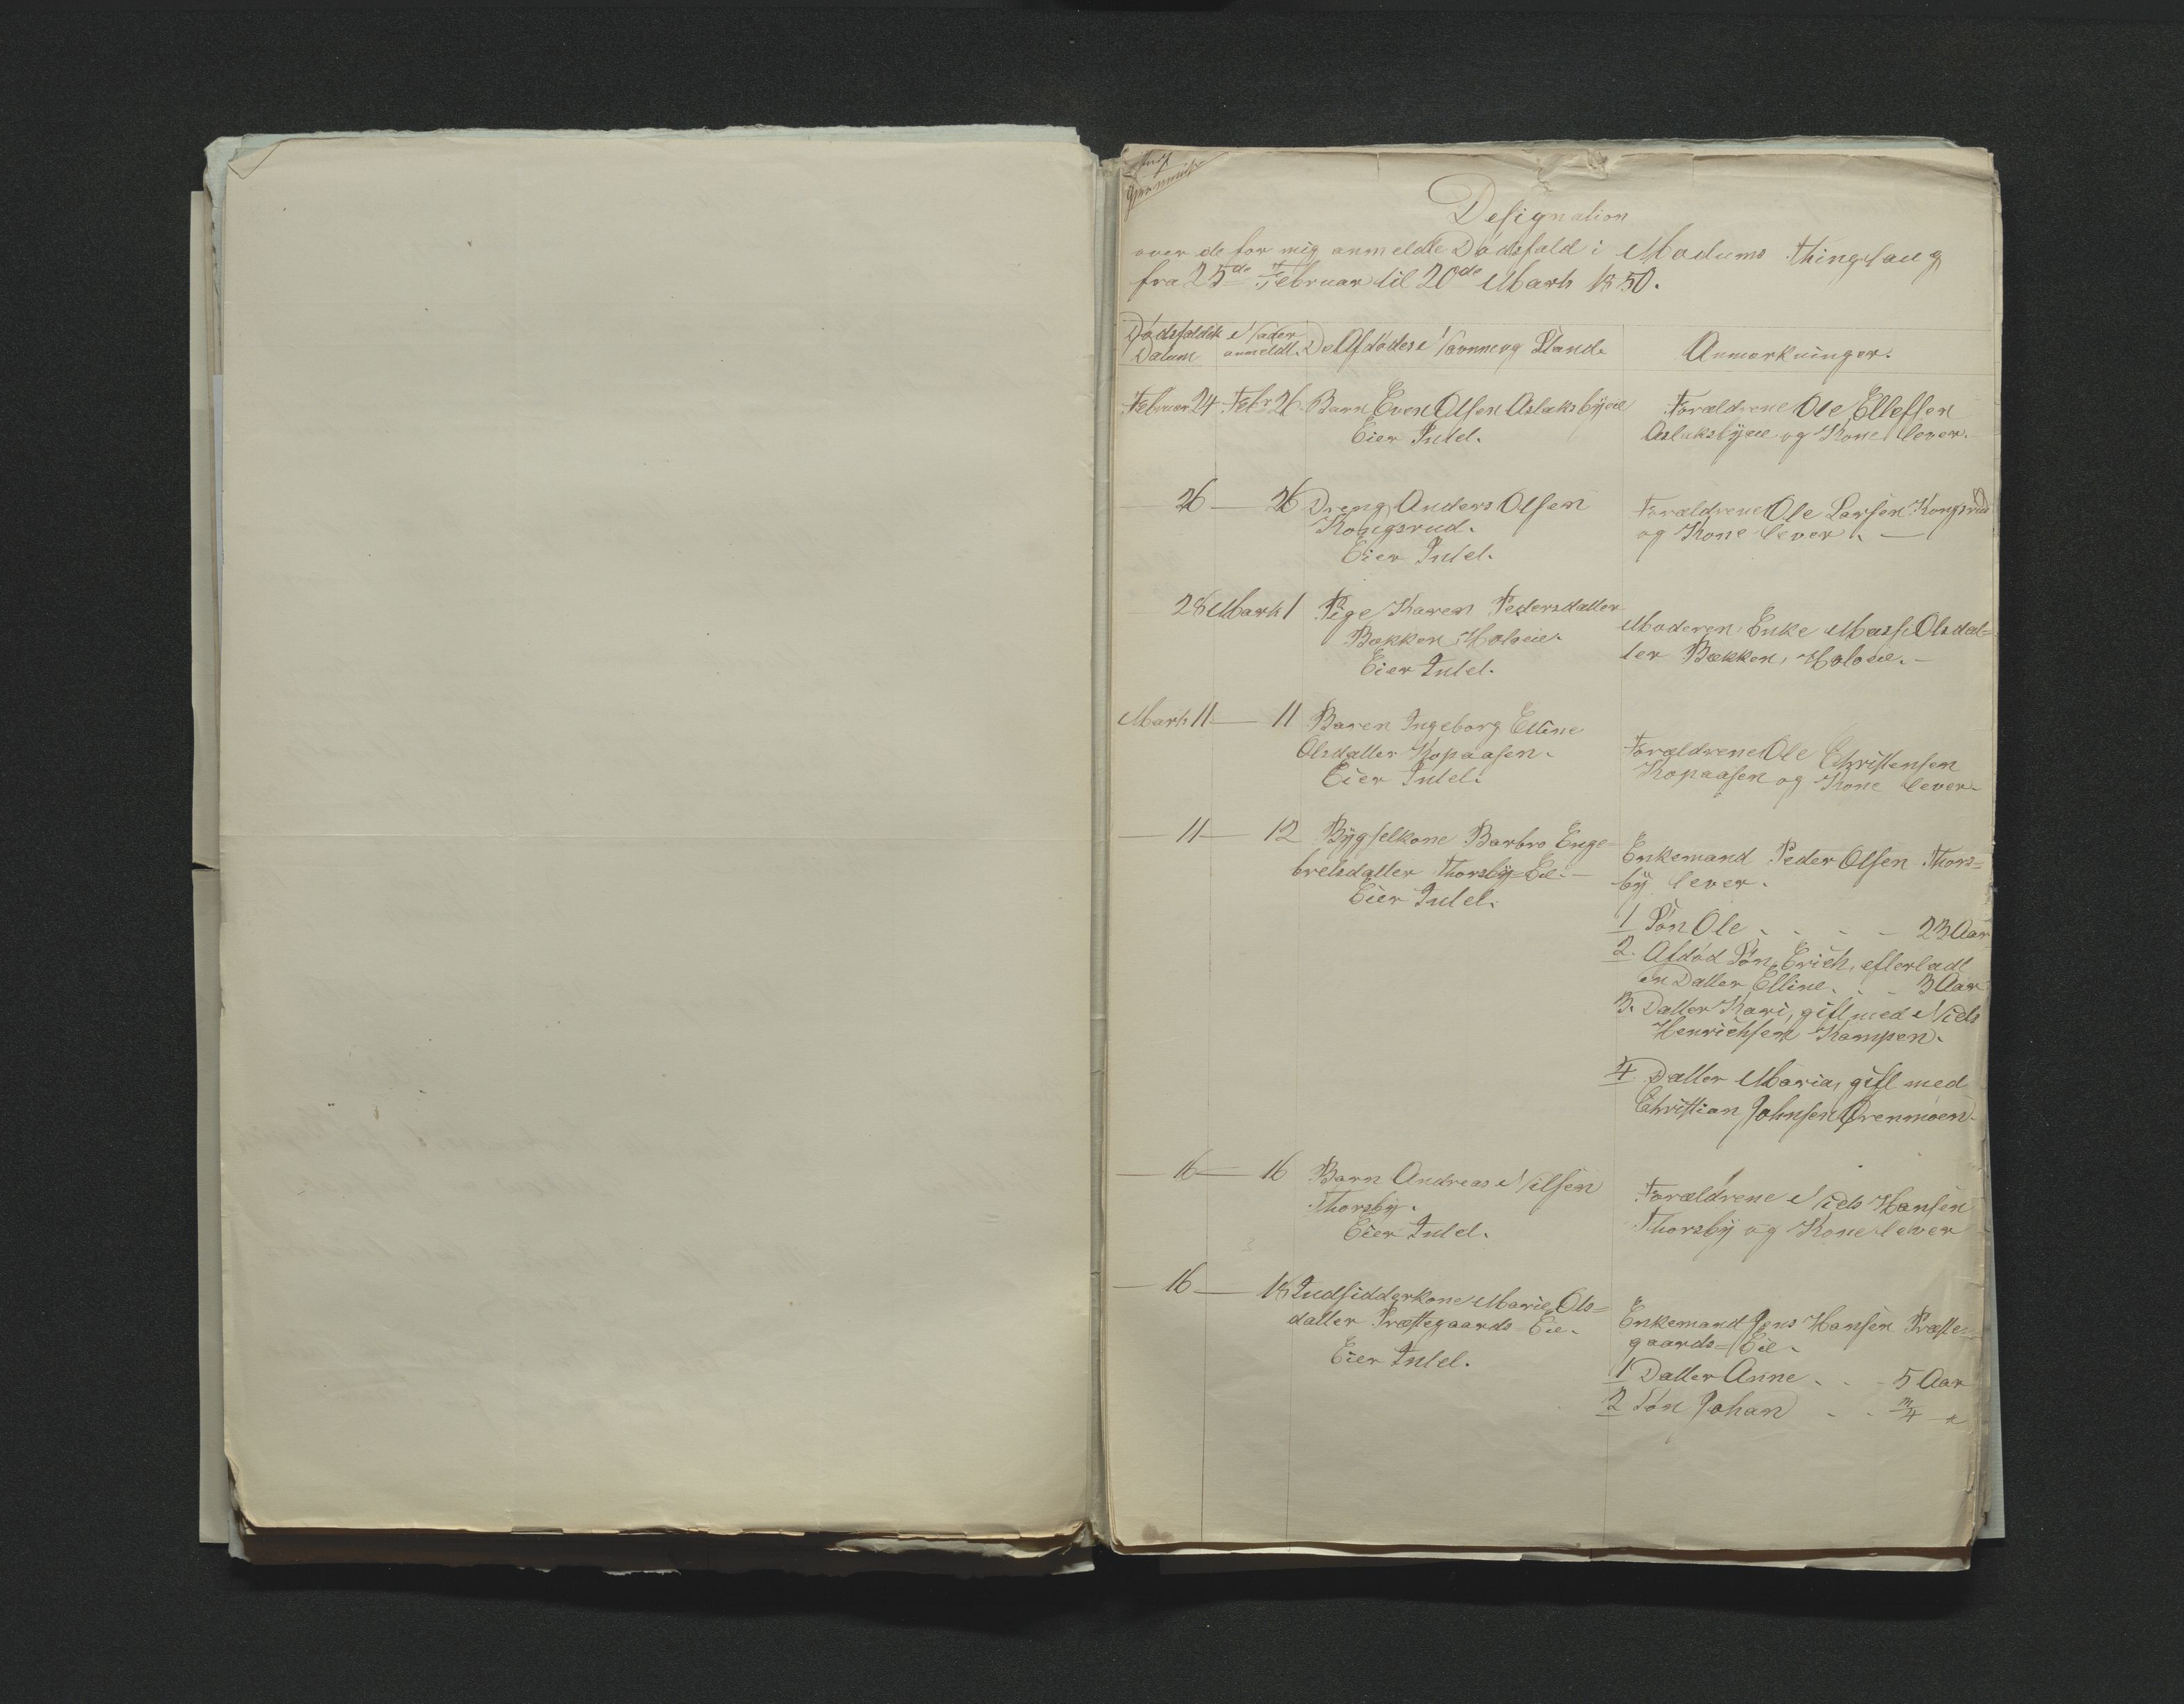 Designation
over de for mig anmeldte Dødsfald i Modums Thinglaug
fra 25de Februar til 20de Marts 1850.
Dødsfaldets Datum
Naar anmeldt.
De Afdødes Navnne og Stand.
Anmærkninger.
Februar 24 Febr 26 Barn Even Olsen Aslaksbyeie
Eier Intet.
Forældrene Ole Ellefsen
Aslaksbyeie og Kone lever.
— 26 — 26 Dreng Anders Olsen
Kongsrud.
Eier Intet.
Forældrene Ole Larsen Kongsrud
og Kone lever. —
28 Marts 1 Pige Karen Pedersdatter
Bækken, Holoeie.
Eier Intet.
Moderen, Enke Mari Olsdat=
ter Bækken, Holoeie. —
Marts 11 — 11 Baren Ingeborg Elline
Olsdatter Kopaasen.
Eier Intet.
Forældrene Ole Christensen
Kopaasen og Kone lever.
— 11 — 12 Bygselkone Barbro Enge=
bretsdatter Thorsby=Eie. —
Eier Intet.
Enkemand Peder Olsen Thors=
by lever.
1 Søn Ole . . . - 23 Aar
2. Afdød Søn, Erich, efterladt
en Datter Elline. . - 3 Aar
3. Datter Kari, gift med Niels
Henrichsen Kampen.
4 Datter Maria, gift med
Christian Johnsen Ørenmoen.
— 16 — 16 Barn Andreas Nilsen
Thorsby.
Eier Intet.
Forældrene Niels Hansen
Thorsby og Kone lever
— 16 — 18 Indsidderkone Marie Ols=
datter Præstegaards=Eie.
Eier Intet.
Enkemand Jens Hansen Præste=
gaards=Eie.
1 Datter Anne . . - 5 Aar
2 Søn Johan . . 3/4 "